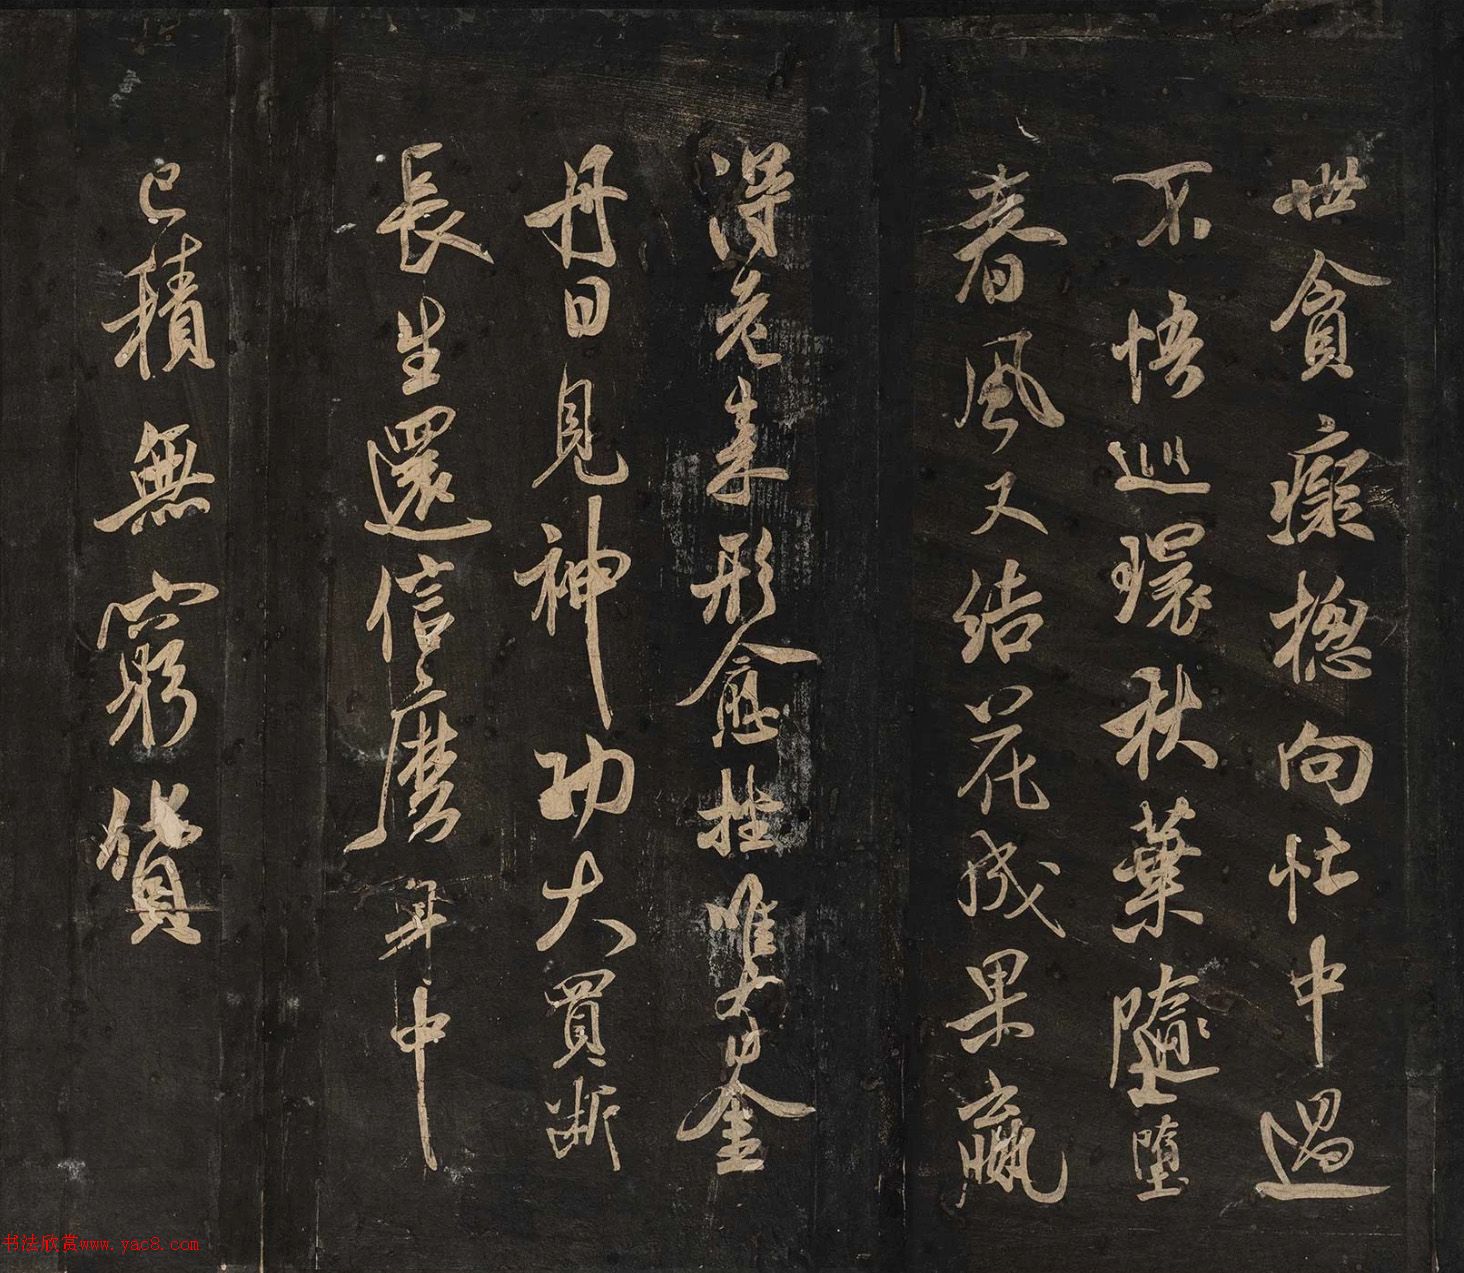 世貪癡揔向忙中過
不悟巡環秋葉隨墮
春風又結花成果贏
得老来形愈拙唯有金
丹日見神功大買断
長生還信麼年中
已積無窮貨
书法欣赏www.yac8.com